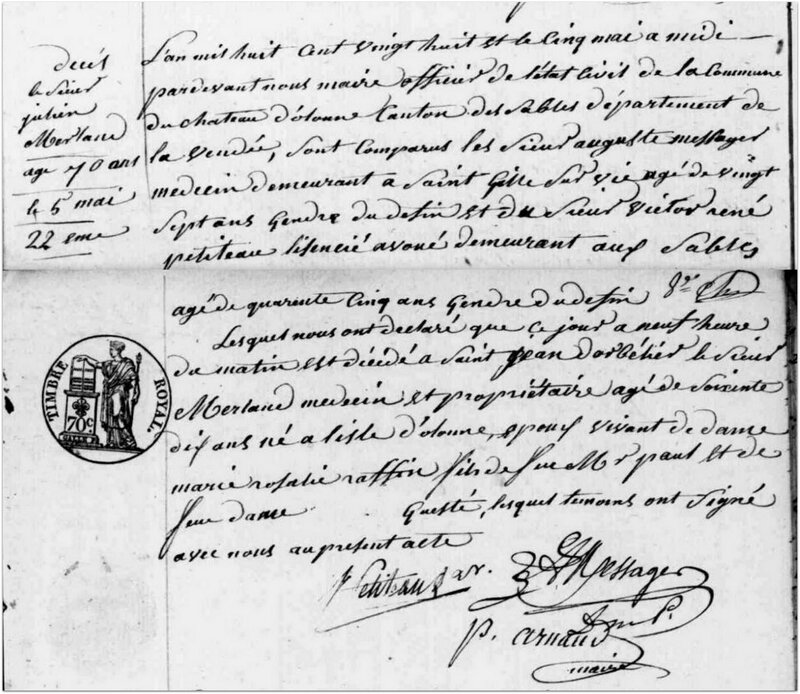 décès
le Sieur
julien
Merland
agé 70 ans
le 5 mai
22 eme
L'an mil huit Cent vingt huit et le Cinq mai a midi
pardevant nous maire officier de l'état Civil de la Commune
du chateau d'olonne Canton des Sables département de
la vendée, Sont Comparus les Sieur auguste messager
medecin demeurant a Saint Gille Sur vie agé de vingt
Sept ans Gendre du defin et du Sieur victor rené
petiteau lisencié avoué demeurant aux Sables
agé de quarente Cinq ans Gendre du defin
Lesquels nous ont déclaré que Ce jour a neuf heure
du matin est décidé a Saint jean d'orbétier le Sieur
Merland medecin et propriétaire agé de Soixente
dix ans né a lisle d'olonne, epoux vivant de dame
marie rosalie raffin fils de feue Mr paul et de
feue dame Guesté, lesquel temoins ont Signé
avec nous au present acte
TIMBRE ROYAL.
70c
Petiteau av.
A Messager
D. m. P.
p. arnaud
maire